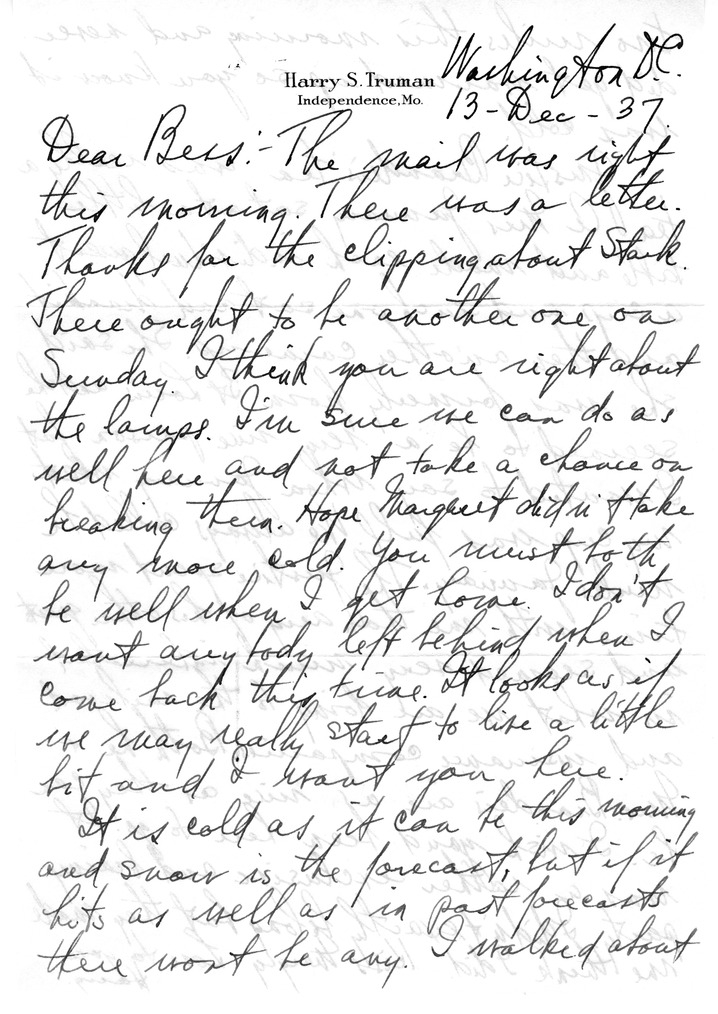 Harry S. Truman
Independence, Mo.
Washington D.C.
13-Dec-37.
Dear Bess:- The mail was right
this morning. There was a letter.
Thanks for the clipping about Stark.
There ought to be another one on
Sunday. I think you are right about
the lamps. I'm sure we can do as
well here and not take a chance on
breaking them. Hope Margaret didn't take
any more cold. You must both
be well when I get home. I don't
want anybody left behind when I
come back this time. It looks as if
we may really start to live a little
bit and I want you here.
It is cold as it can be this morning
and snow is the forecast, but if it
hits as well as in past forecasts
there wont be any. I walked about